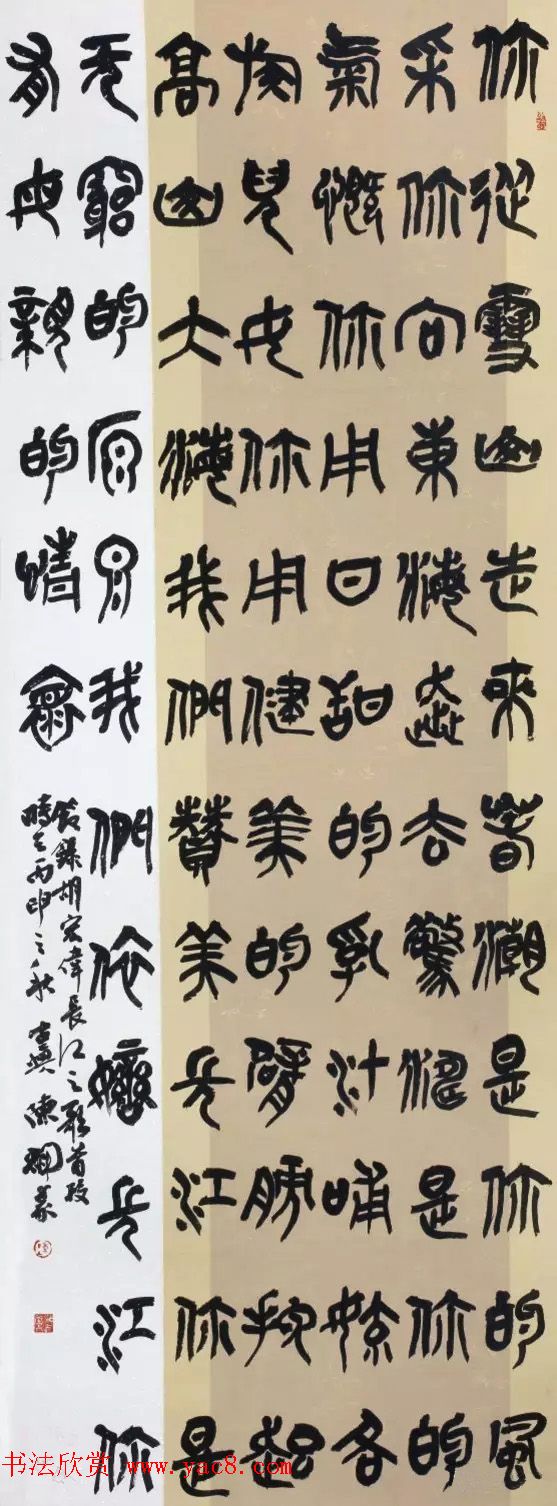 你從雪山走來春潮是你的風
采你向東海奔去驚濤是你的
氣概你用甘甜的乳汁哺育各
族兒女你用健美的臂膀挽起
高山大海我們贊美長江你是
无窮的源泉我們依戀長江你
有母親的情懷
節錄胡宏偉長江之歌首段
時在丙申之秋 陳
书法欣赏 www.yac8.com